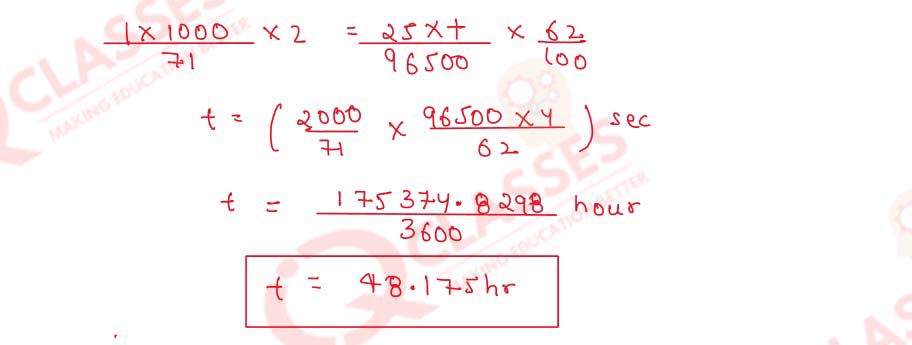 1×1000/71 × 2 = 25×t/96500 × 62/100
t = (2000/71 × 96500×4/62) sec
t = 175374.8298/3600 hour
t = 48.175hr
CLASSES
MAKING EDUCATION BETTER
CLASSES
MAKING EDUCATION BETTER
CLAS